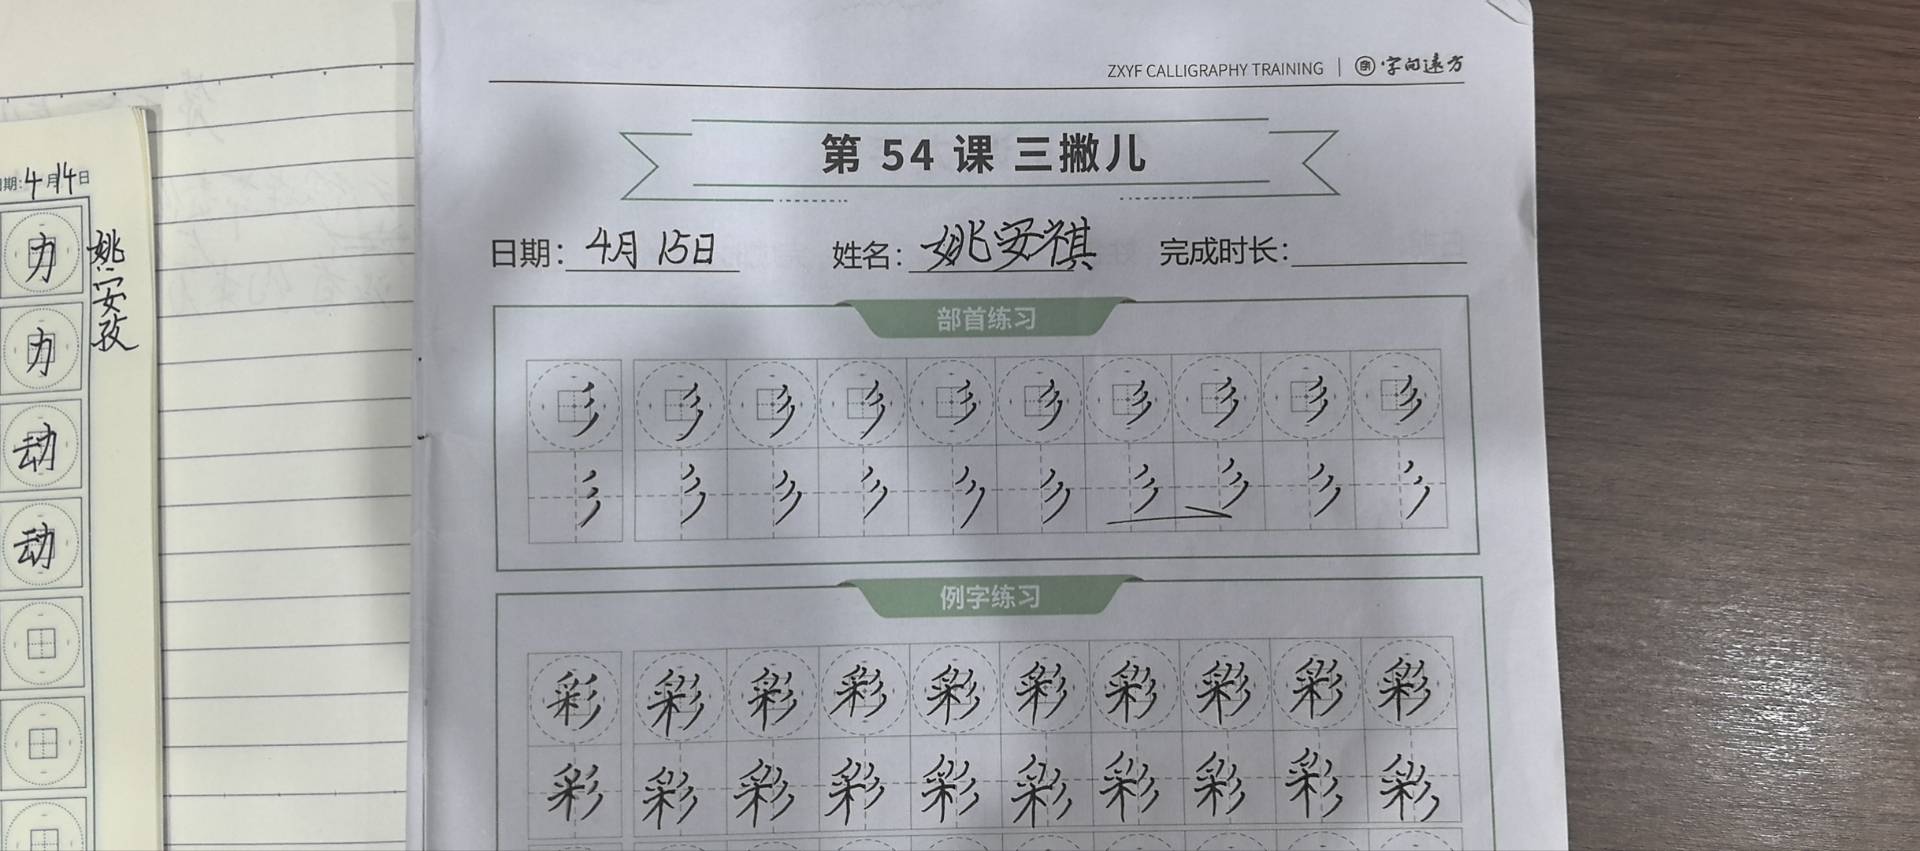 期:4月14日
力
力
动
动
姚安孜
ZXYF CALLIGRAPHY TRAINING | 字向远方
第 54 课 三撇儿
日期: 4月15日 姓名: 姚安祺 完成时长:
部首练习
彡 彡 彡 彡 彡 彡 彡 彡 彡 彡
彡 彡 彡 彡 彡 彡 彡 彡 彡 彡
例字练习
彩 彩 彩 彩 彩 彩 彩 彩 彩 彩
彩 彩 彩 彩 彩 彩 彩 彩 彩 彩